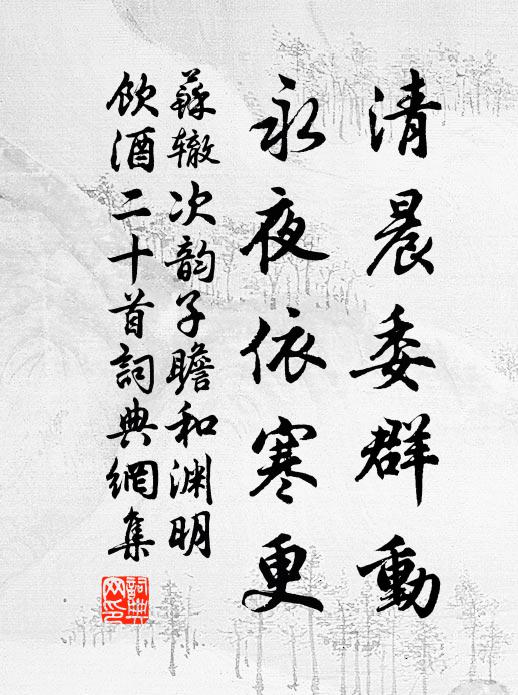 清晨委群動
永夜依寒更
蘇辙次韵子瞻和渊明
飲酒二十首詞典網集
詞典
网印